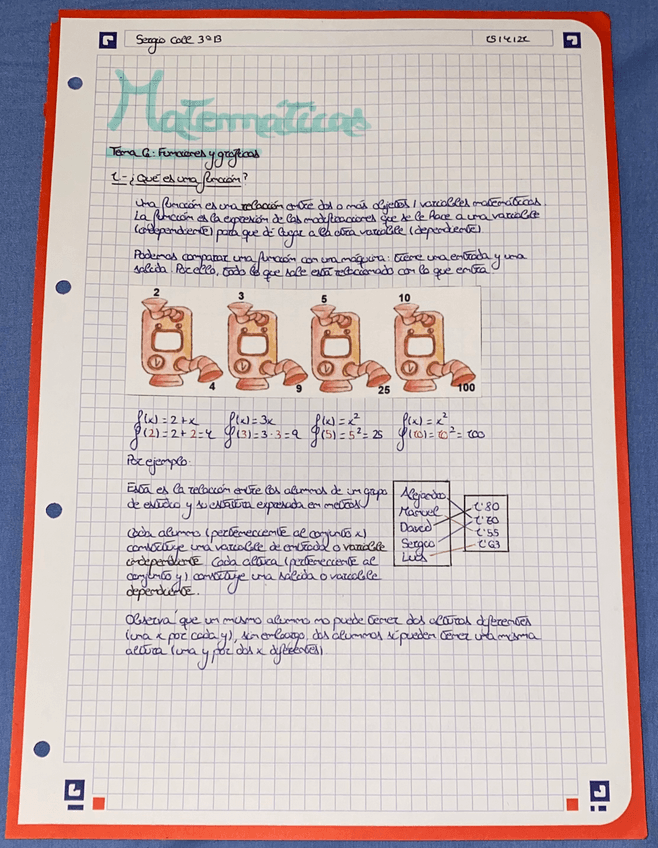 Sergio Coll 3ºB
Matemáticas
Tema 6: Funciones y gráficas
1.-¿Qué es una función?
Una función es una relación entre dos o más objetos / variables matemáticas.
La función es la expresión de las modificaciones que se le hace a una variable
(independiente) para que dé lugar a la otra variable (dependiente)
Podemos comparar una función con una máquina: tiene una entrada y una
salida. Por ello, todo lo que sale está relacionado con lo que entra.
2 3 5 10
4 9 25 100
f(x)=2+x f(x)=3x f(x)=x² f(x)=x²
f(2)=2+2=4 f(3)=3·3=9 f(5)=5²=25 f(10)=10²=100
Por ejemplo:
Esta es la relación entre los alumnos de un grupo
de estudio y su estatura expresada en metros
Alejandro
Manuel
David
Sergio
Luis
1'80
1'60
1'55
1'63
Cada alumno (perteneciente al conjunto x)
constituye una variable de entrada o variable
independiente. Cada altura (perteneciente al
conjunto y) constituye una salida o variable
dependiente.
Observa que un mismo alumno no puede tener dos alturas diferentes
(una x por cada y), sin embargo, dos alumnos sí pueden tener una misma
altura (una y por dos x diferentes)